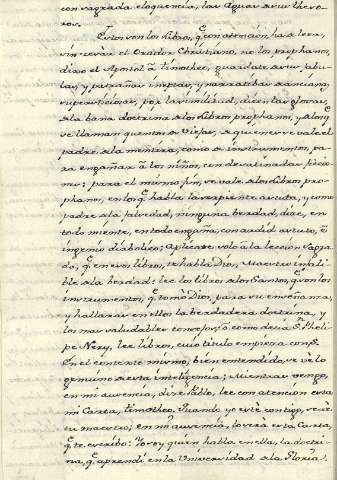 con sagrada eloquencia, las Aguas a sus theso-
ros.
Estos son los Libros, q.e con atencion, ha a leer,
sin cesar el Orador Christiano, no los prophanos,
dixo el Apostol â Timotheo, guardate a sus fabu-
las, y patrañas ineptas, y narratibas a anciana,
supersticiosas, por las inutiles, dicen las glosas,
a la bana doctrina a los Libros prophanos, y a lo q.e
se llaman quentos a Viejas, a quienes se vale el
padre a la mentira, como a instrumentos, pa-
ra engañar â los niños, con desatinadas ficcio-
nes; para el mismo fin, se vale a los Libros pro-
phanos, en los q.e habla la serpiente astuta, y como
padre a la falsedad, ninguna berdad, dice, en
todo miente, en todo engaña, con audid astuto, è
ingenio diabolico; Aplicate solo â la leccion Sagra-
da, q.e en esos libros, te habla Dios, Maestro infali-
ble a la berdad: lee los libros a los Santos, q.e son los
instrumentos, q.e tomò Dios, para su enseñansa,
y hallaras en ellos la berdadera doctrina, y
los mas saludables consejos; ò como decia S.n Pheli-
pe Nery, lee libros, cuio titulo empiesa con S.
En el contexto mismo, bien entendido, se vè lo
oportuno a esta inteligencia; Mientras vengo,
en mi ausencia, dice Pablo, lee con atencion esta
mi Carta, Timotheo. Quando yo estè contigo, serè
tu maestro; en mi ausencia, lo serà esta Carta,
q.e te escribo: Yo soy quien habla en ella, la doctri-
na, q.e aprendi en la Universidad a la Gloria.